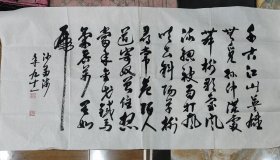 千古江山英雄
無覓孫仲謀處
舞榭歌臺風
流總被雨打風
吹去斜陽草樹
尋常巷陌人
道寄奴曾住想
當年金戈鐵馬
氣吞萬里如
虎
沙孟海
年九十一